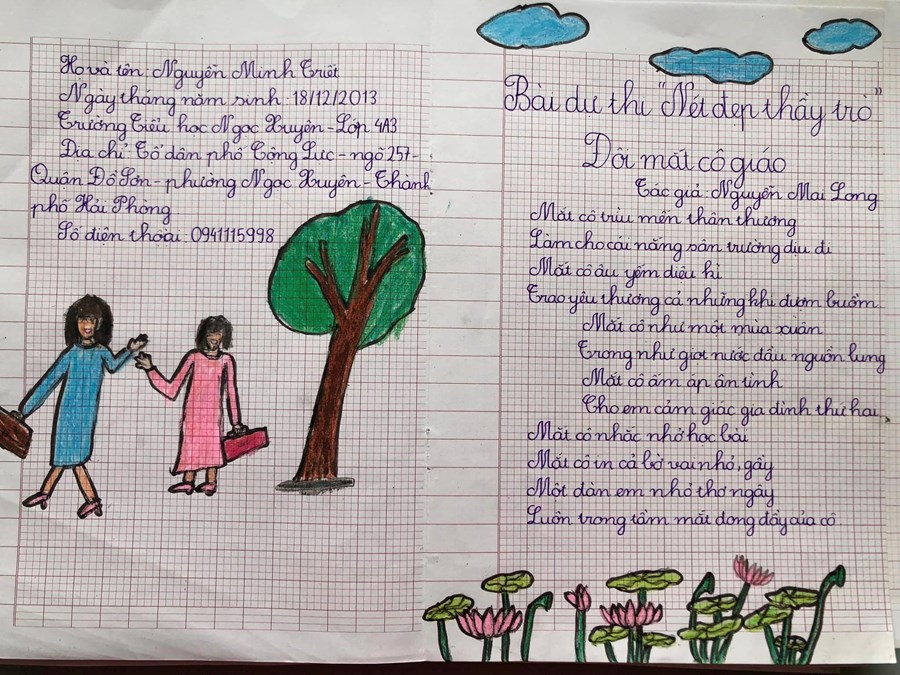 Họ và tên: Nguyễn Minh Triết
Ngày tháng năm sinh: 18/12/2013
Trường Tiểu học Ngọc Xuyên - Lớp 4A3
Địa chỉ Tổ dân phố Công Lực - ngõ 257 -
Quận Đồ Sơn - phường Ngọc Xuyên - Thành
phố Hải Phòng
Số điện thoại: 0941115998
Bài dự thi "Nét đẹp thầy trò"
Đôi mắt cô giáo
Tác giả: Nguyễn Mai Long
Mắt cô trìu mến thân thương
Làm cho cái nắng sân trường dịu đi
Mắt cô âu yếm diệu kì
Trao yêu thương cả những khi đượm buồn.
Mắt cô như một mùa xuân
Trong như giọt nước đầu nguồn lung
Mắt cô ấm áp ân tình
Cho em cảm giác gia đình thứ hai.
Mắt cô nhắc nhở học bài
Mắt cô in cả bờ vai nhỏ, gầy
Một đàn em nhỏ thơ ngây
Luôn trong tầm mắt dong đầy của cô.